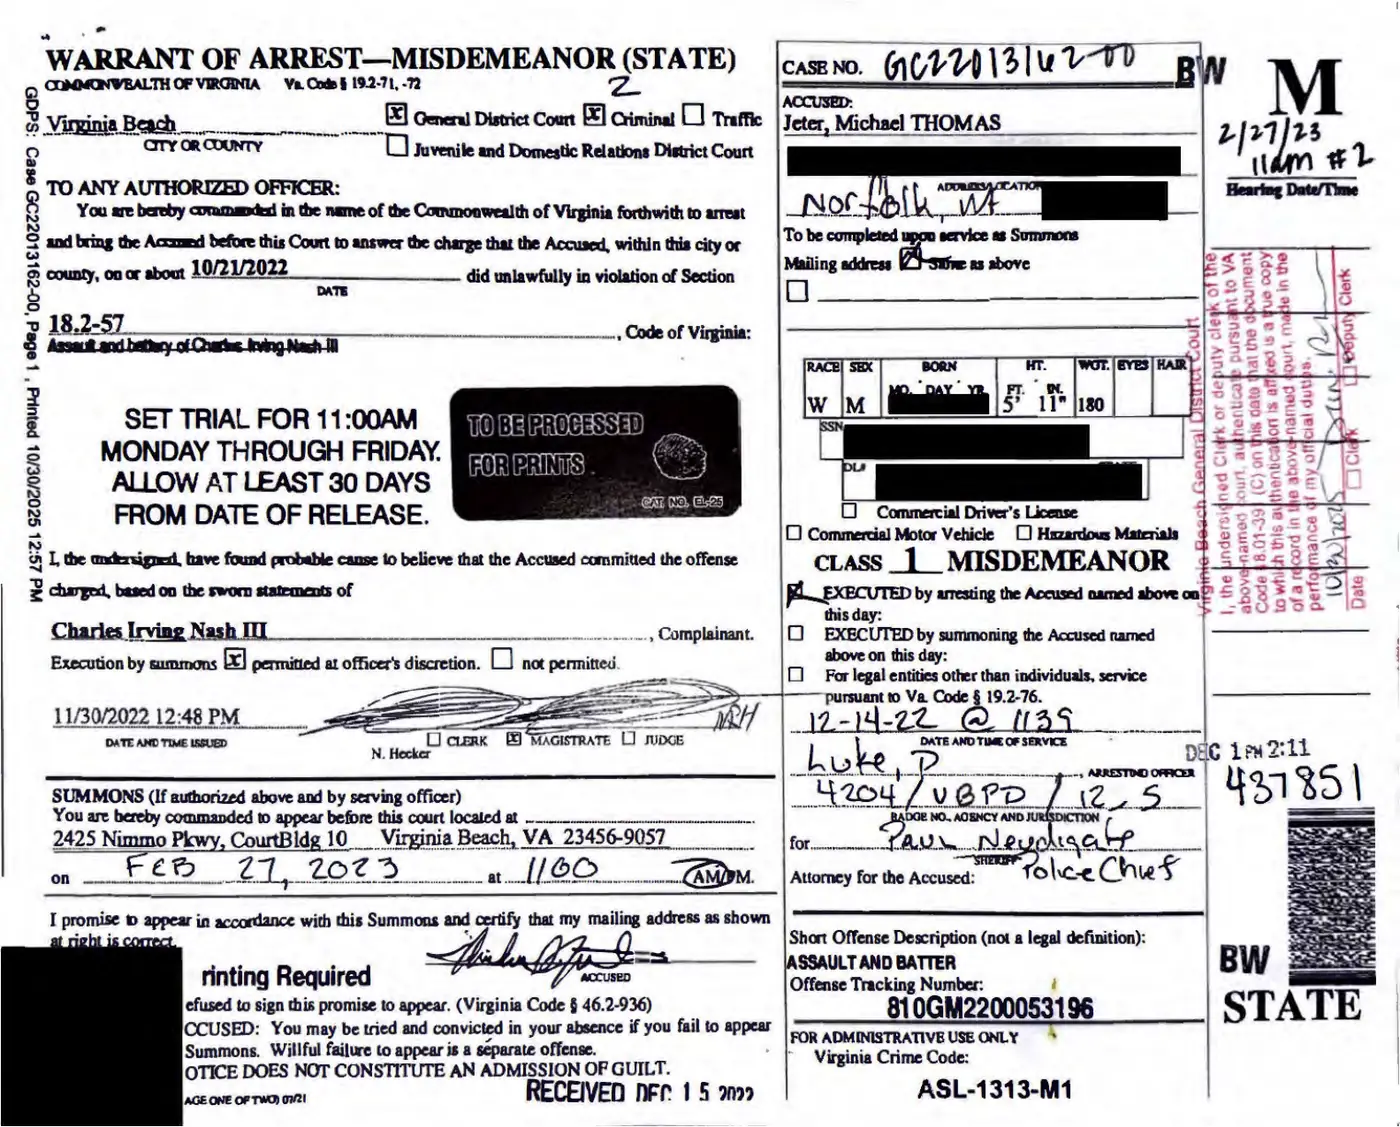 WARRANT OF ARREST—MISDEMEANOR (STATE)
COMMONWEALTH OF VIRGINIA Va. Code § 19.2-71, -72
2
Virginia Beach
CITY OR COUNTY
[x] General District Court [x] Criminal [ ] Traffic
[ ] Juvenile and Domestic Relations District Court
TO ANY AUTHORIZED OFFICER:
You are hereby commanded in the name of the Commonwealth of Virginia forthwith to arrest
and bring the Accused before this Court to answer the charge that the Accused, within this city or
county, on or about 10/21/2022 did unlawfully in violation of Section
DATE
18.2-57, Code of Virginia:
Assault and battery of Charles Irving Nash III
SET TRIAL FOR 11:00AM
MONDAY THROUGH FRIDAY.
ALLOW AT LEAST 30 DAYS
FROM DATE OF RELEASE.
TO BE PROCESSED
FOR PRINTS
CAT. NO. EL-25
I, the undersigned, have found probable cause to believe that the Accused committed the offense
charged, based on the sworn statements of
Charles Irving Nash III, Complainant.
Execution by summons [x] permitted at officer's discretion. [ ] not permitted.
11/30/2022 12:48 PM
NRH
DATE AND TIME ISSUED
[ ] CLERK [x] MAGISTRATE [ ] JUDGE
N. Hecker
SUMMONS (If authorized above and by serving officer)
You are hereby commanded to appear before this court located at
2425 Nimmo Pkwy, CourtBldg 10 Virginia Beach, VA 23456-9057
on FEB 27, 2023 at 1100 AM/PM.
I promise to appear in accordance with this Summons and certify that my mailing address as shown
at right is correct.
ACCUSED
rinting Required
efused to sign this promise to appear. (Virginia Code § 46.2-936)
CCUSED: You may be tried and convicted in your absence if you fail to appear
Summons. Willful failure to appear is a separate offense.
OTICE DOES NOT CONSTITUTE AN ADMISSION OF GUILT.
AGE ONE OF TWO) 07/21
RECEIVED DEC 15 2022
GDPS: Case GC22013162-00, Page 1, Printed 10/30/2025 12:57 PM
CASE NO. GC22013162-00
BW
ACCUSED:
Jeter, Michael THOMAS
ADDRESS/LOCATION
Norfolk, VA
To be completed upon service as Summons
Mailing address [x] Same as above
RACE SEX BORN HT. WGT. EYES HAIR
MO. DAY YR. FT. IN.
W M 5' 11" 180
SSN
DL#
STATE
[ ] Commercial Driver's License
[ ] Commercial Motor Vehicle [ ] Hazardous Materials
CLASS 1 MISDEMEANOR
[x] EXECUTED by arresting the Accused named above on
this day:
[ ] EXECUTED by summoning the Accused named
above on this day:
[ ] For legal entities other than individuals, service
pursuant to Va. Code § 19.2-76.
12-14-22 @ 1139
DATE AND TIME OF SERVICE
Luke, D, ARRESTING OFFICER
4204 / VBPD / 12 S
BADGE NO., AGENCY AND JURISDICTION
for Paul Neudigate
SHERIFF Police Chief
Attorney for the Accused:
Short Offense Description (not a legal definition):
ASSAULT AND BATTER
Offense Tracking Number:
810GM2200053196
FOR ADMINISTRATIVE USE ONLY
Virginia Crime Code:
ASL-1313-M1
M
2/27/23
11am #2
Hearing Date/Time
Virginia Beach General District Court
I, the undersigned Clerk or deputy clerk of the
above-named court, authenticate pursuant to VA
Code §8.01-39 (C) on this date that the document
to which this authentication is affixed is a true copy
of a record in the above-named court, made in the
performance of my official duties.
Date [ ] Clerk [ ] Deputy Clerk
DEC 1 PM 2:11
437851
BW
STATE